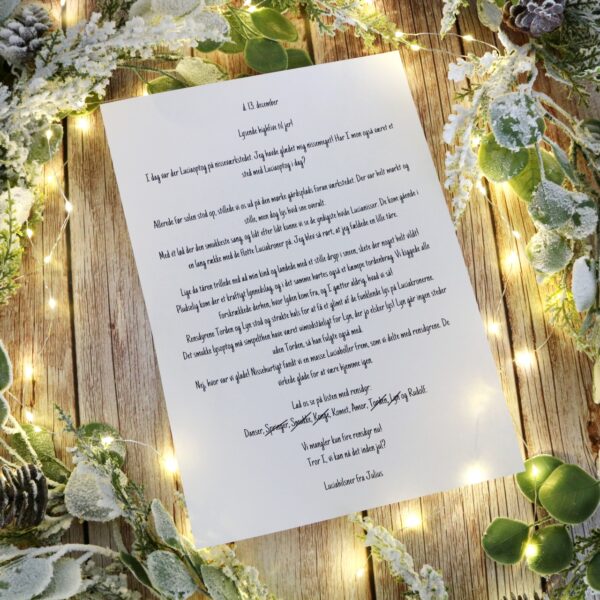 d. 13. december
Lysende highfive til jer!
I dag var der Luciaoptog på nisseværkstedet. Jeg havde glædet mig nissemeget! Har I mon også været et
sted med Luciaoptog i dag?
Allerede før solen stod op, stillede vi os ud på den mørke gårdsplads foran værkstedet. Der var helt mørkt og
stille, men dog lys hvid sne overalt.
Med ét lød der den smukkeste sang, og lidt efter lidt kunne vi se de yndigste hvide Lucianisser. De kom gående i
en lang række med de flotte Luciakroner på. Jeg blev så rørt, at jeg fældede en lille tåre.
Lige da tåren trillede ned ad min kind og landede med et stille dryp i sneen, skete der noget helt vildt!
Pludselig kom der et kraftigt lynnedslag, og i det samme hørtes også et kæmpe tordenbrag. Vi kiggede alle
forskrækkede derhen, hvor lyden kom fra, og I gætter aldrig, hvad vi så!
Rensdyrene Torden og Lyn stod og strakte hals for at få et glimt af de funklende lys på Luciakronerne.
Det smukke lysoptog må simpelthen have været uimodståeligt for Lyn, der jo elsker lys! Lyn går ingen steder
uden Torden, så han fulgte også med.
Nøj, hvor var vi glade! Nissehurtigt fandt vi en masse Luciaboller frem, som vi delte med rensdyrene. De
virkede glade for at være hjemme igen.
Lad os se på listen med rensdyr:
Danser, Springer, Smukke, Konge, Komet, Amor, Torden, Lyn og Rudolf.
Vi mangler kun fire rensdyr nu!
Tror I, vi kan nå det inden jul?
Luciahilsner fra Julius